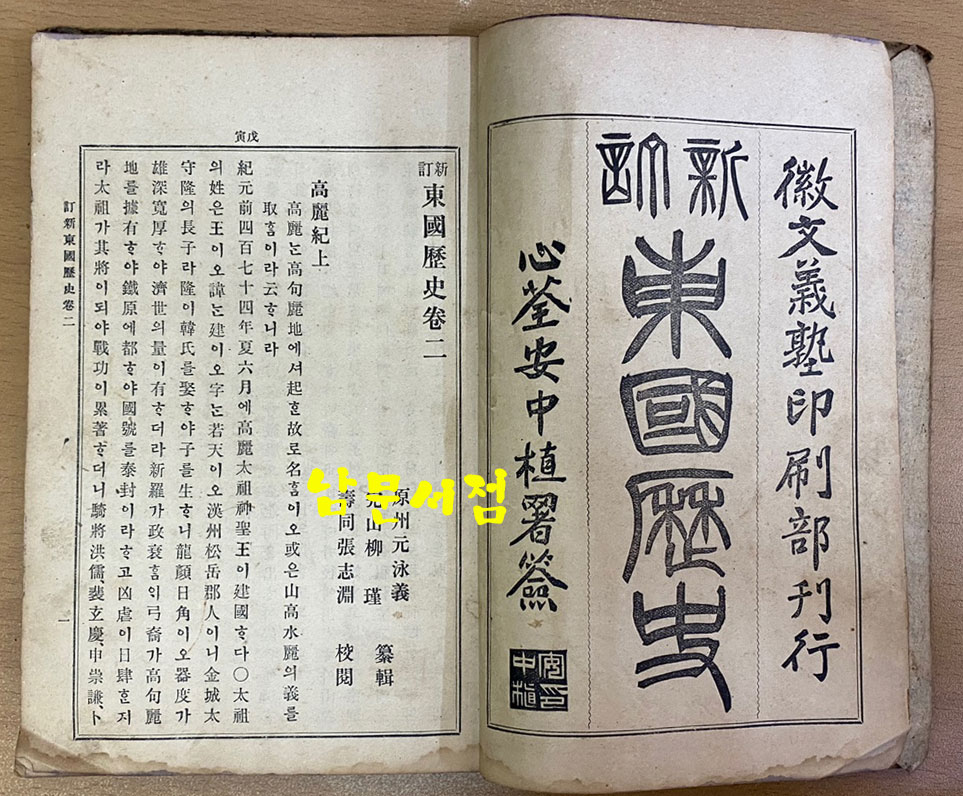 徽文義塾印刷部刊行
新訂
東國歷史
心荃安中植署簽
安中植印
戊寅
新訂 東國歷史卷二
原州元泳義
柳瑾 纂輯
壽同張志淵 校閱
高麗紀上
高麗는高句麗地에셔起ᄒᆞᆫ故로名ᄒᆞᆷ이오或은山高水麗의義를
取ᄒᆞᆷ이라云ᄒᆞ니라
紀元前四百七十四年夏六月에高麗太祖神聖王이建國ᄒᆞ다〇太祖
의姓은王이오諱는建이오字는若天이오漢州松岳郡人이니金城太
守隆의長子라隆이韓氏를娶ᄒᆞ야子를生ᄒᆞ니龍顔日角이오器度가
雄深寬厚ᄒᆞ야濟世의量이有ᄒᆞ더라新羅가政衰ᄒᆞᆷᄋᆡ弓裔가高句麗
地를據有ᄒᆞ야鐵原에都ᄒᆞ야國號를泰封이라ᄒᆞ고凶虐이日肆ᄒᆞᆫ지
라太祖가其將이되야戰功이累著ᄒᆞ더니騎將洪儒、裴玄慶、申崇謙、卜
訂新東國歷史卷二
一
남문서점